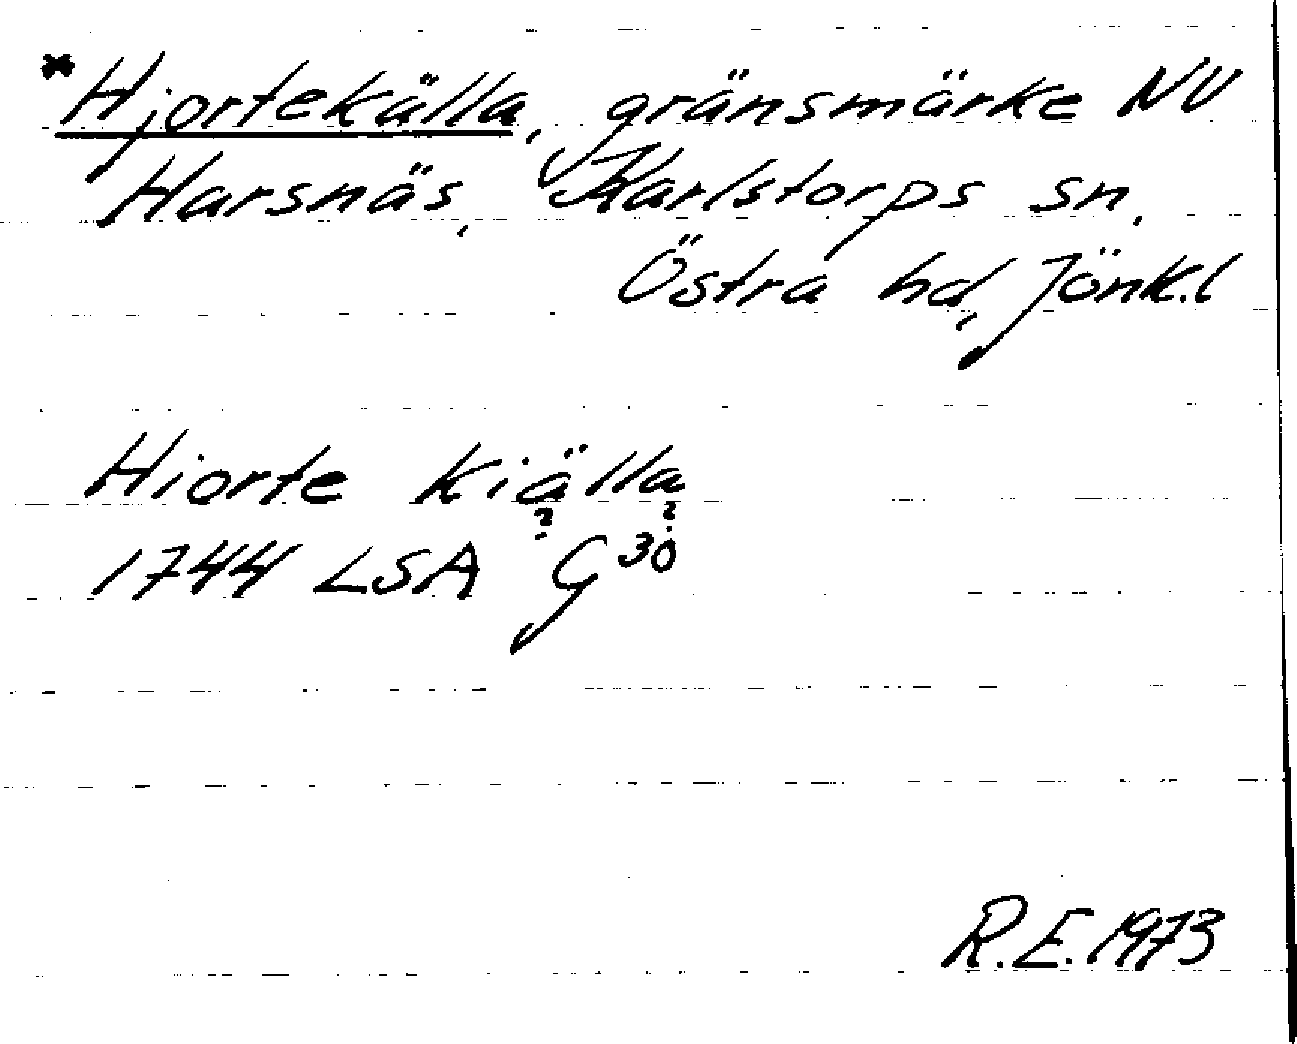 *Hjortekälla, gränsmärke NV
Harsnäs, Karlstorps sn,
Östra hd, Jönk.l
Hiorte Kiälla
? ?
1744 LSA G 30
R.E. 1973